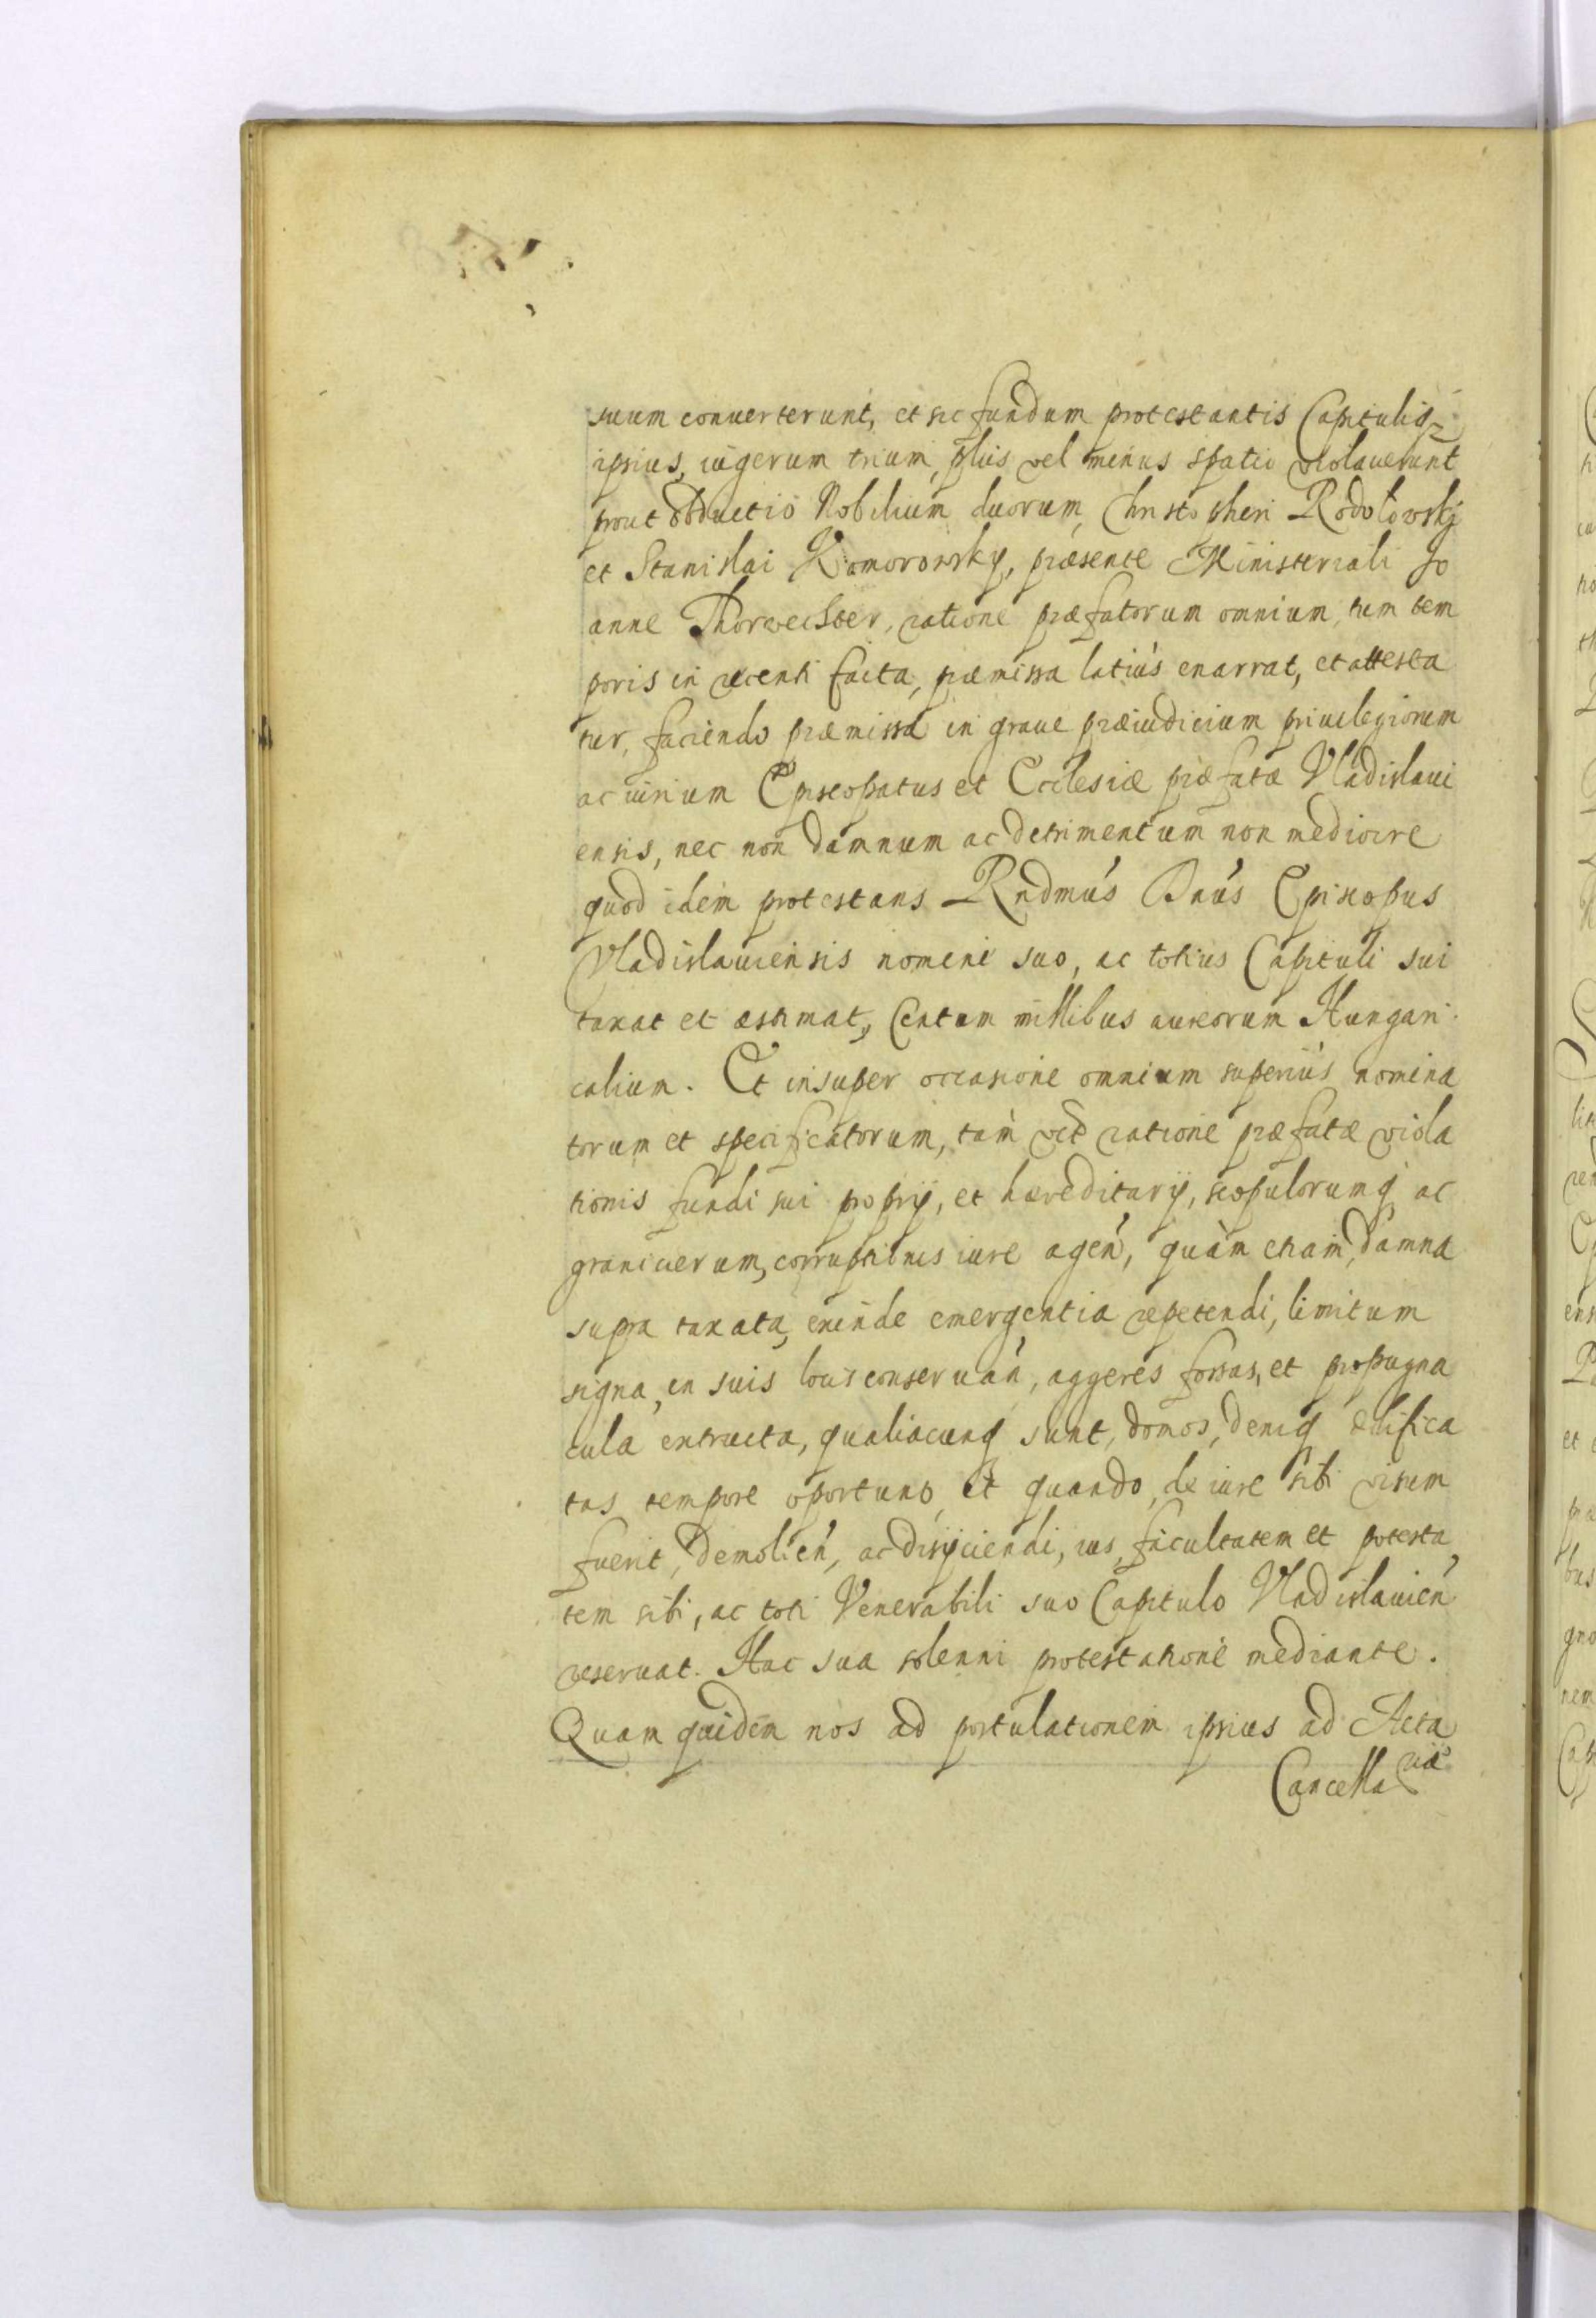 suum conuerterunt, et sic fundum protestantis Capituliq;
ipsius, iugerum trium, plus vel minus spatio violauerunt
prout obductio Nobilium duorum, Christopheri Rodołowskj
et Stanislai Komorowsky, præsente Ministeriali Jo
anne Thorwechter, ratione præfatorum omnium, tum tem
poris in recenti facta, præmissa latiùs enarrat, et attesta
tur, faciendo præmissa in graue præiudicium priuilegiorum
ac iurium Episcopatus et Ecclesiæ præfatæ Vladislaui
ensis, nec non damnum ac detrimentum non mediocre
quod idem protestans Rndmús Dnús Episcopus
Vladislauiensis nomine suo, ac totius Capituli sui
taxat et æstimat, Centum millibus aureorum Hungari
calium. Et insuper occasione omnium superiùs nomina
torum et specificatorum, tàm vel ratione præfatæ viola
tionis fundi sui proprij, et hæreditarij, scopulorumq; ac
granicierum, corruptionis iure agen, quàm etiam, damna
supra taxata, exinde emergentia repetendi, limitum
signa, in suis locis conseruan, aggeres fossas, et propugna
cula extructa, qualiacunq; sunt, domos, deniq; ædifica
tas tempore oportuno, et quando, de iure sibi visum
fuerit, demolien, ac disijciendi, ius, facultatem et potesta
tem sibi, ac toti Venerabili suo Capitulo Vladislauien
reseruat. Hac sua solenni protestatione mediante.
Quam quidem nos ad postulationem ipsius ad Acta
Cancellariæ